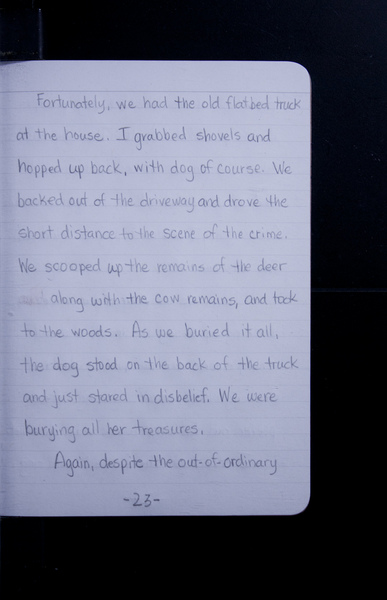 Fortunately, we had the old flatbed truck
at the house. I grabbed shovels and
hopped up back, with dog of course. We
backed out of the driveway and drove the
short distance to the scene of the crime.
We scooped up the remains of the deer
along with the cow remains, and took
to the woods. As we buried it all,
the dog stood on the back of the truck
and just stared in disbelief. We were
burying all her treasures.
Again, despite the out-of-ordinary
-23-